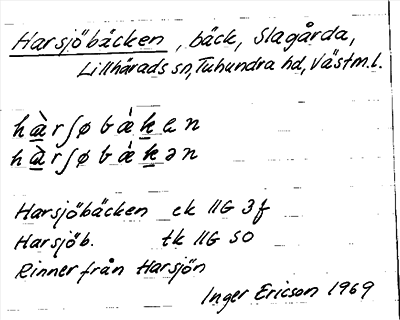 Harsjöbäcken, bäck, Slagårda,
Lillhärads sn, Tuhundra hd, Västm.l.
hàrʃøbákɛn
hàrʃøbákən
Harsjöbäcken ek IIG 3f
Harsjöb. tk IIG SO
Rinner från Harsjön
Inger Ericson 1969